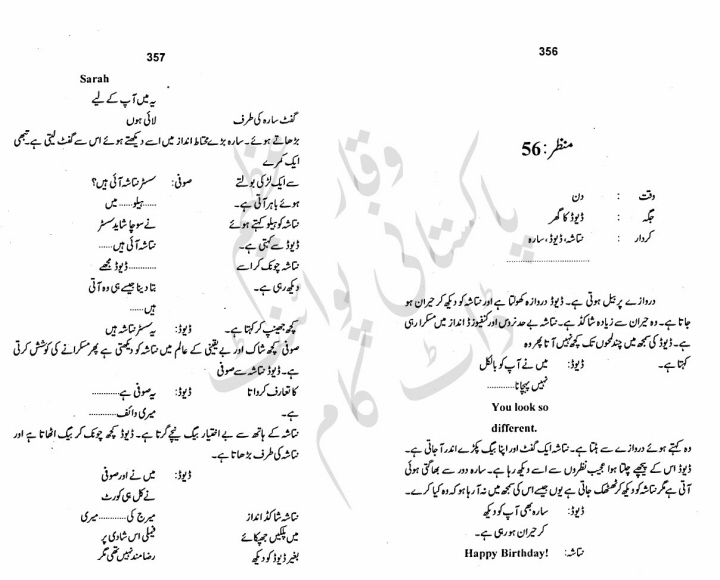 356
منظر: 56
وقت : دن
جگہ : ڈیوڈ کا گھر
کردار : نتاشہ، ڈیوڈ، سارہ
دروازے پر بیل ہوتی ہے۔ ڈیوڈ دروازہ کھولتا ہے اور نتاشہ کو دیکھ کر حیران ہو
جاتا ہے۔ وہ حیران سے زیادہ شاکڈ ہے۔ نتاشہ بے حد نروس اور کنفیوزڈ انداز میں مسکرا رہی
ہے۔ ڈیوڈ کی سمجھ میں چند لمحوں تک کچھ نہیں آتا پھر وہ
کہتا ہے۔ ڈیوڈ: میں نے آپ کو بالکل
نہیں پہچانا............
You look so
different.
وہ کہتے ہوئے دروازے سے ہٹتا ہے۔ نتاشہ ایک گفٹ اور اپنا بیگ پکڑے اندر آ جاتی ہے۔
ڈیوڈ اس کے پیچھے چلتا ہوا عجیب نظروں سے اسے دیکھ رہا ہے۔ سارہ دور سے بھاگتی ہوئی
آتی ہے مگر نتاشہ کو دیکھ کر ٹھٹھک جاتی ہے یوں جیسے اس کی سمجھ میں نہ آ رہا ہو کہ وہ کیا کرے۔
ڈیوڈ: سارہ بھی آپ کو دیکھ
کر حیران ہو رہی ہے۔
نتاشہ: Happy Birthday!
357
Sarah
یہ میں آپ کے لیے
گفٹ سارہ کی طرف لائی ہوں
بڑھاتے ہوئے۔ سارہ بڑے محتاط انداز میں اسے دیکھتے ہوئے اس سے گفٹ لیتی ہے۔ تبھی
ایک کمرے
سے ایک لڑکی بولتے صوفی: سسٹر نتاشہ آئی ہیں؟
ہوئے باہر آتی ہے۔ ......ہیلو...... میں
نتاشہ کو ہیلو کہتے ہوئے نے سوچا شاید سسٹر
ڈیوڈ سے کہتی ہے۔ نتاشہ آئی ہیں......
نتاشہ چونک کر اسے ............ڈیوڈ مجھے
دیکھ رہی ہے۔ بتا دینا جیسے ہی وہ آتی
ہیں......
کچھ جھینپ کر کہتا ہے۔ ڈیوڈ: یہ سسٹر نتاشہ ہیں
صوفی کچھ شاک اور بے یقینی کے عالم میں نتاشہ کو دیکھتی ہے پھر مسکرانے کی کوشش کرتی
ہے۔ ڈیوڈ نتاشہ سے صوفی
کا تعارف کرواتا ڈیوڈ: یہ صوفی ہے............
ہے۔ میری وائف............
نتاشہ کے ہاتھ سے بے اختیار بیگ نیچے گرتا ہے۔ ڈیوڈ کچھ چونک کر بیگ اٹھاتا ہے اور
نتاشہ کی طرف بڑھاتا ہے۔
ڈیوڈ: میں نے اور صوفی
نے کل ہی کورٹ
نتاشہ شاکڈ انداز میرج کی............میری
میں پلکیں جھپکائے فیملی اس شادی پر
بغیر ڈیوڈ کو دیکھ رضامند نہیں تھی مگر
وقار عظیم
پاکستانی پوائنٹ
ڈاٹ کام